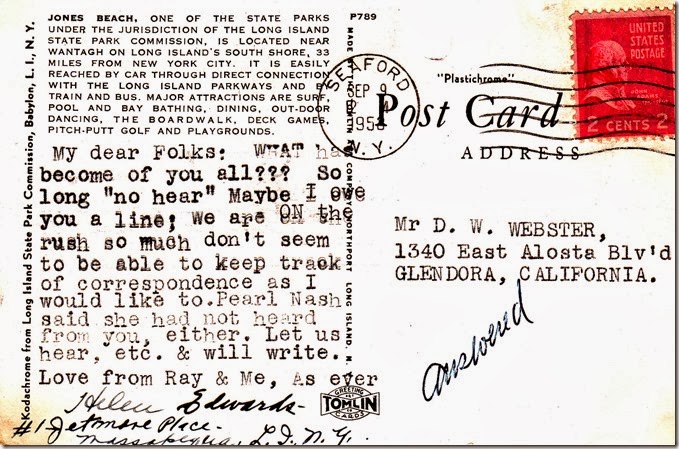 JONES BEACH, ONE OF THE STATE PARKS
UNDER THE JURISDICTION OF THE LONG ISLAND
STATE PARK COMMISSION, IS LOCATED NEAR
WANTAGH ON LONG ISLAND'S SOUTH SHORE, 33
MILES FROM NEW YORK CITY. IT IS EASILY
REACHED BY CAR THROUGH DIRECT CONNECTION
WITH THE LONG ISLAND PARKWAYS AND BY
TRAIN AND BUS. MAJOR ATTRACTIONS ARE SURF,
POOL AND BAY BATHING, DINING, OUT-DOOR
DANCING, THE BOARDWALK, DECK GAMES,
PITCH-PUTT GOLF AND PLAYGROUNDS.
My dear Folks: WHAT has
become of you all??? So
long "no hear" Maybe I owe
you a line; We are ON the
rush so much don't seem
to be able to keep track
of correspondence as I
would like to.Pearl Nash
said she had not heard
from you, either. Let us
hear, etc. & will write.
Love from Ray & Me, As ever
Helen Edwards-
#1 Jetmore Place-
Massapequa, L.I. N.Y.
Kodachrome from Long Island State Park Commission, Babylon, L. I., N. Y.
P789
MADE BY TOMLIN NORTHPORT LONG ISLAND, N.
SEAFORD
SEP 9
N.Y.
"Plastichrome"
Post Card
ADDRESS
UNITED
STATES
POSTAGE
JOHN ADAMS
2 CENTS 2
Mr D. W. WEBSTER,
1340 East Alosta Blv'd
GLENDORA, CALIFORNIA.
answered
GREETING
TOMLIN
CARDS